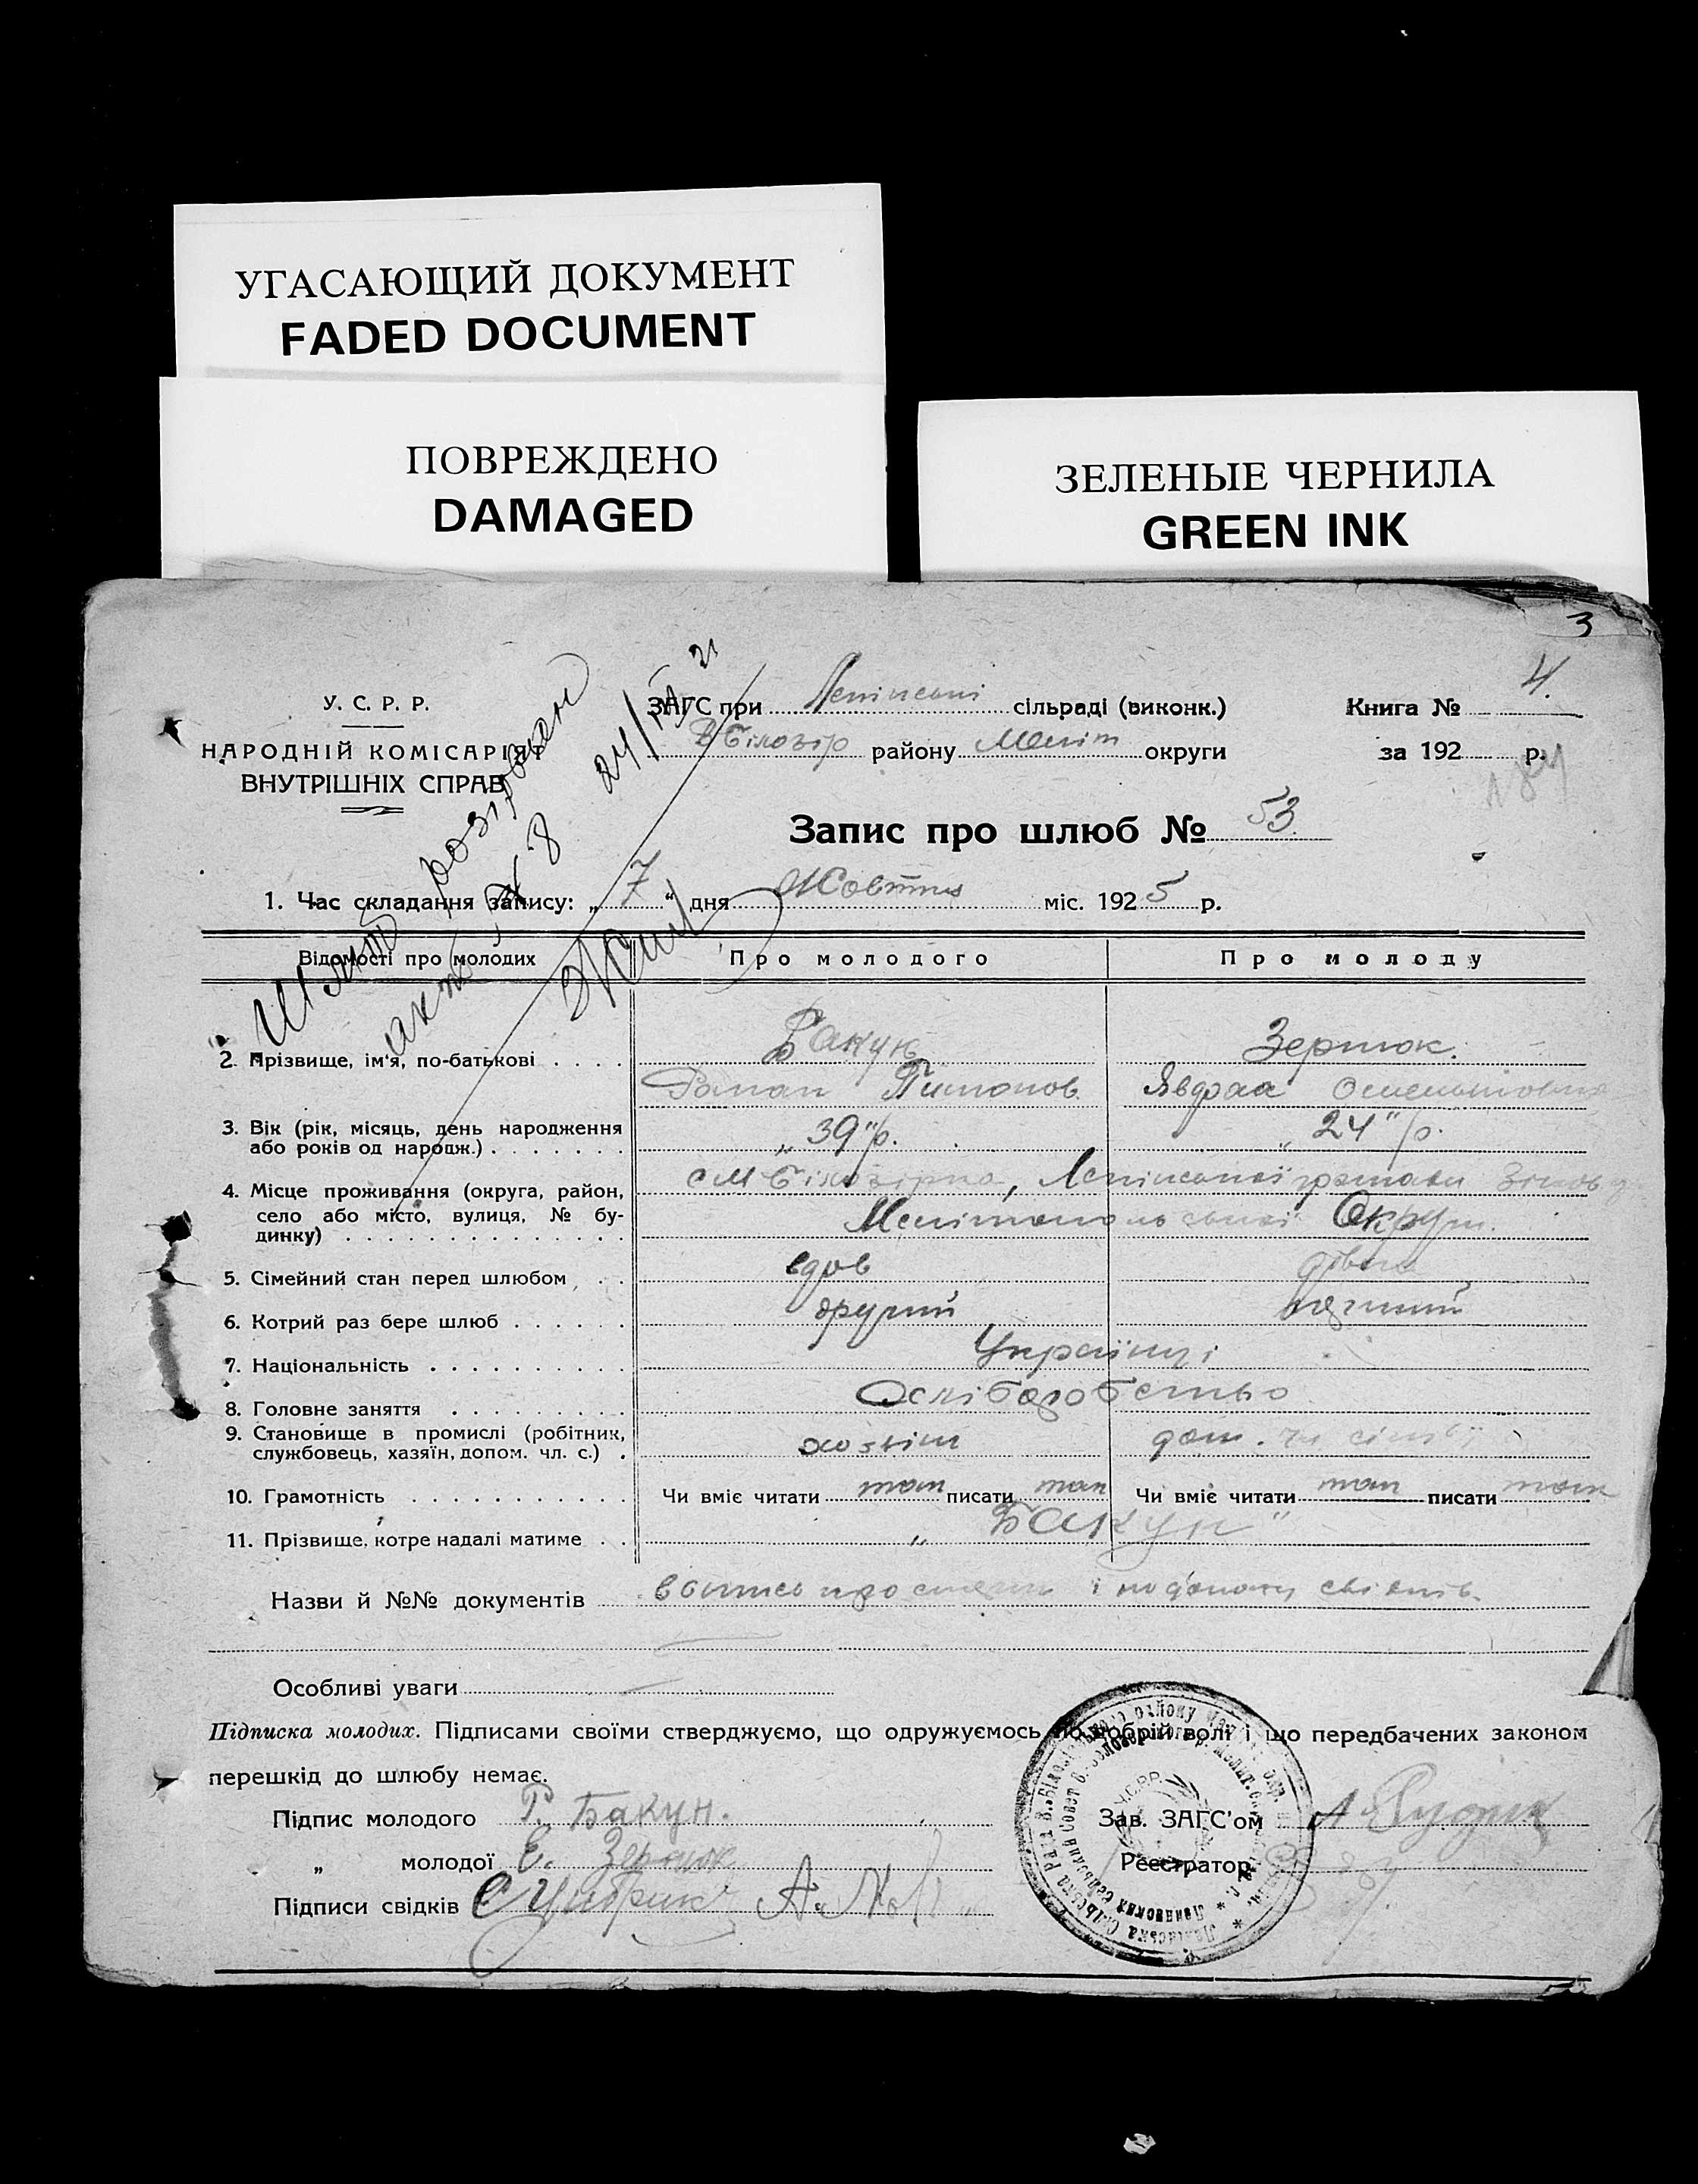 УГАСАЮЩИЙ ДОКУМЕНТ
FADED DOCUMENT
ПОВРЕЖДЕНО
DAMAGED
ЗЕЛЕНЫЕ ЧЕРНИЛА
GREEN INK
3
У. С. Р. Р.
НАРОДНІЙ КОМІСАРІЯТ
ВНУТРІШНІХ СПРАВ
ЗАГС при сільраді (виконк.)
В Білозір району Меліт округи
Книга № 4.
за 192 р.
Запис про шлюб № 53
1. Час складання запису: „ 7 “ дня Жовтня міс. 1925 р.
Шлюб розірван
акт № 8
Відомості про молодих
Про молодого
Про молоду
2. Прізвище, ім'я, по-батькові
Бакун
Зернюк.
Роман
Явдоха
3. Вік (рік, місяць, день народження або років од народж.)
„39" р.
„24" р.
4. Місце проживання (округа, район, село або місто, вулиця, № будинку)
Мелітопольської Округи.
5. Сімейний стан перед шлюбом
вдов
дівиця
6. Котрий раз бере шлюб
другий
перший
7. Національність
Українці
8. Головне заняття
Хліборобство
9. Становище в промислі (робітник, службовець, хазяїн, допом. чл. с.)
хозяїн
доп. чл сімьї
10. Грамотність
Чи вміє читати так писати так
Чи вміє читати так писати так
11. Прізвище, котре надалі матиме
„Бакун"
Назви й №№ документів
Особливі уваги
Підписка молодих. Підписами своїми стверджуємо, що одружуємось по добрій волі і що передбачених законом
перешкід до шлюбу немає.
Підпис молодого Р. Бакун.
„ молодої Е. Зернюк
Підписи свідків
Зав. ЗАГС'ом
Реєстратор